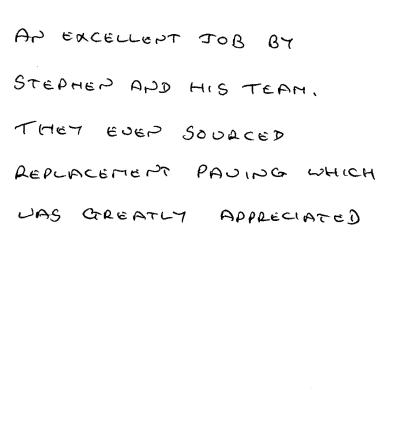 AN EXCELLENT JOB BY
STEPHEN AND HIS TEAM.
THEY EVEN SOURCED
REPLACEMENT PAVING WHICH
WAS GREATLY APPRECIATED